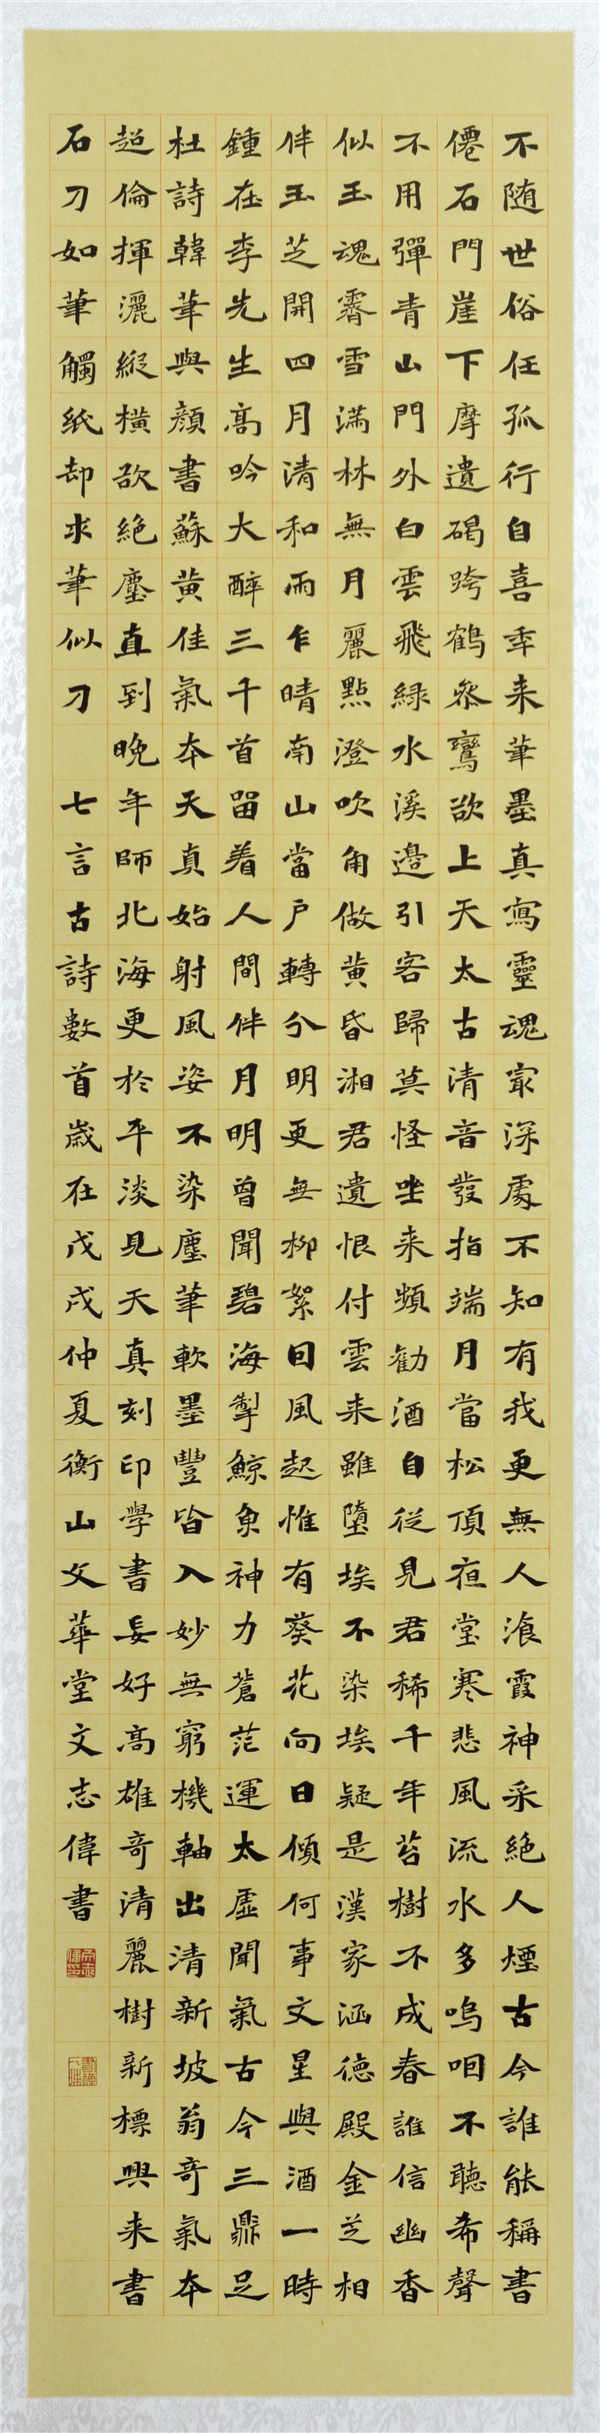 不随世俗任孤行自喜年来筆墨真寫靈魂㝡深處不知有我更無人飡霞神采絶人煙古今誰能稱書
僊石門崖下摩遺碣跨鶴叅鸞欲上天太古清音發指端月當松頂夜堂寒悲風流水多嗚咽不聽希聲
不用彈青山門外白雲飛緑水溪邉引客歸莫怪坐来頻勧酒自従見君稀千年苔樹不成春誰信幽香
似玉魂霽雪满林無月麗點澄吹角做黄昏湘君遺恨付雲来雖墮埃不染埃疑是漢家涵德殿金芝相
伴玉芝開四月清和雨乍晴南山當户轉分明更無柳絮因風起惟有葵花向日傾何事文星與酒一時
鍾在李先生高吟大醉三千首畱着人間伴月明曾聞碧海掣鯨魚神力蒼茫運太虚聞氣古今三鼎足
杜詩韓筆與顔書蘇黄佳氣本天真始射風姿不染塵筆軟墨豐皆入妙無窮機軸出清新坡翁奇氣本
超倫揮灑縱横欲絶塵直到晚年師北海更於平淡見天真刻印學書妄好高雄奇清麗樹新標興来書
石刀如筆觸紙却求筆似刀 七言古詩數首歲在戊戌仲夏衡山文華堂文志偉書